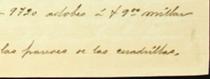 - 9720 adobes á 49 00 millar
las paredes de las cuadrillas,